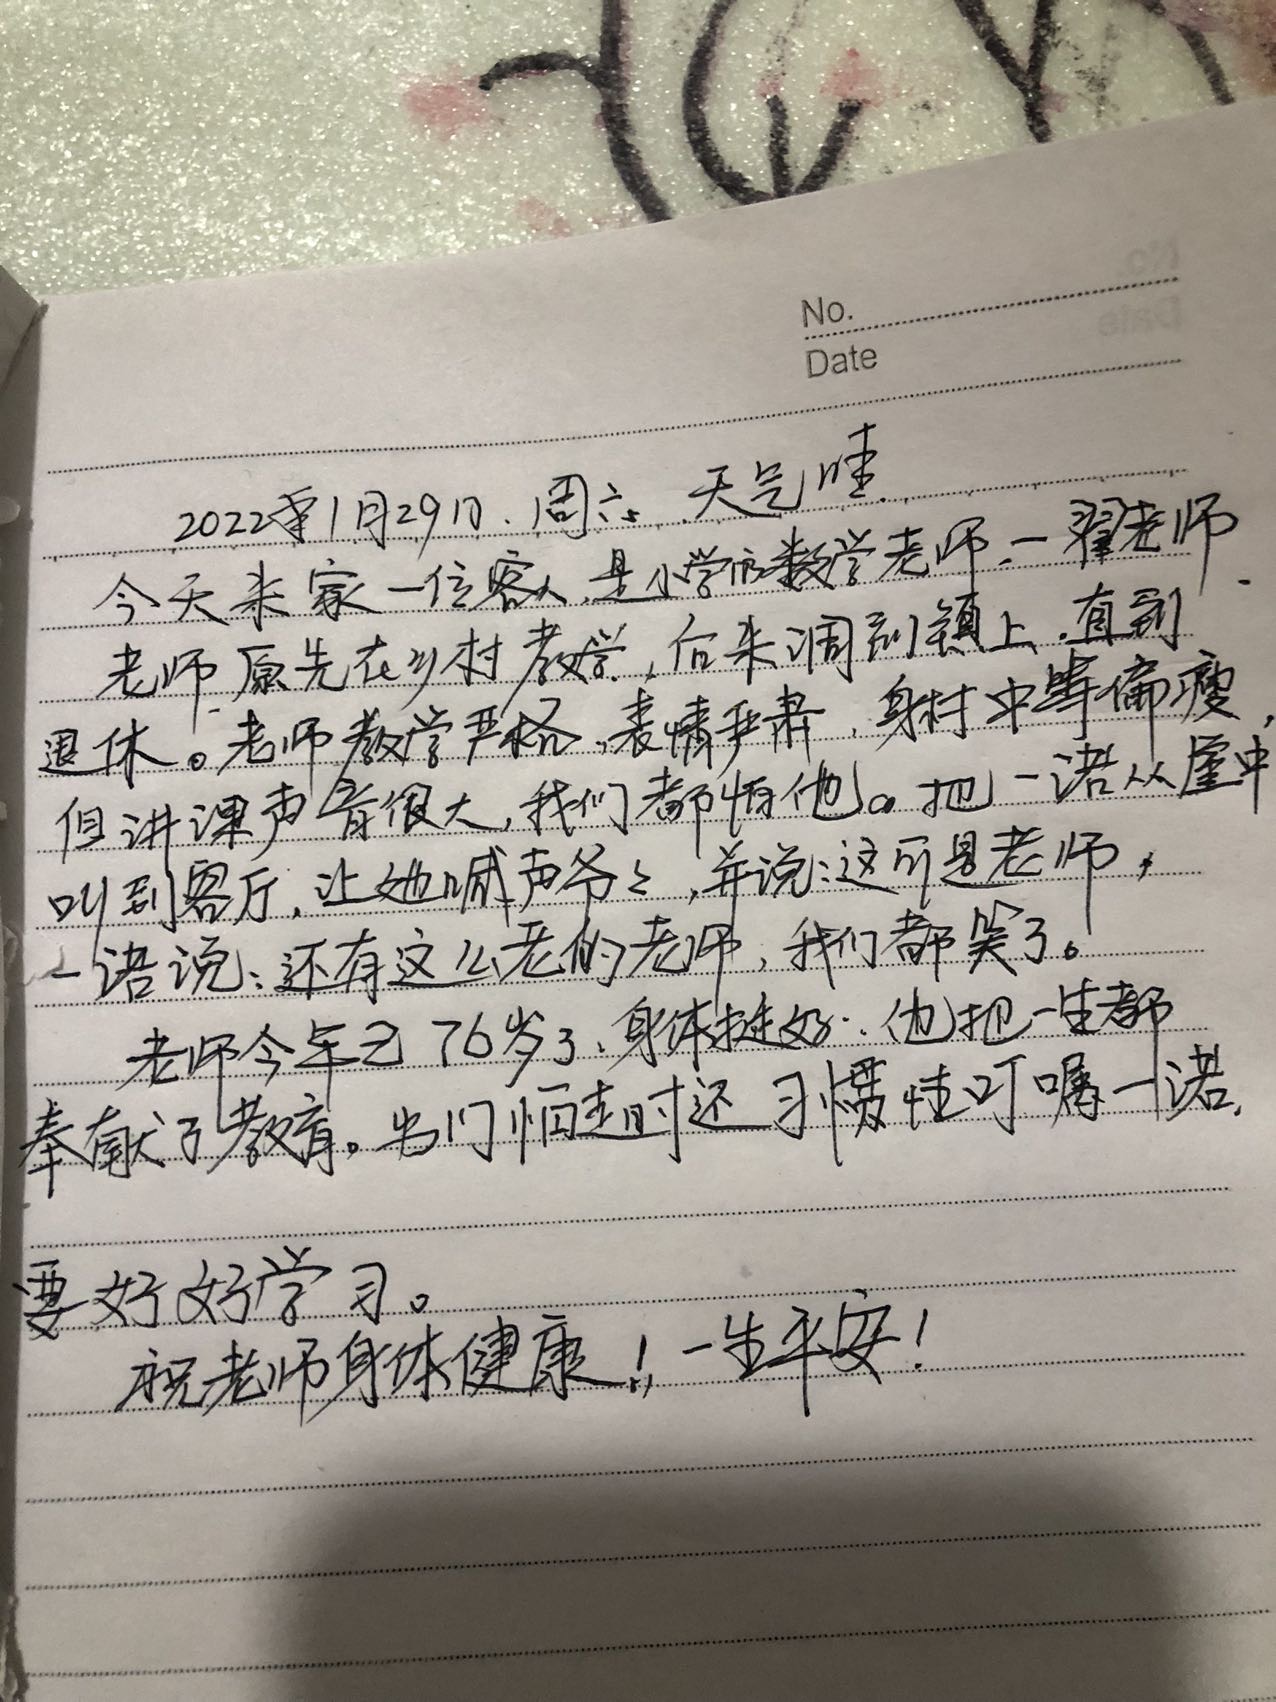 No.
Date
2022年1月29日.周六.天气晴.
今天来家一位客人,是小学的数学老师.一翟老师.
老师原先在乡村教学,后来调到镇上.直到
退休。老师教学严格,表情严肃,身材中等偏瘦,
但讲课声音很大,我们都怕他。把一诺从屋中
叫到客厅,让她喊声爷々,并说:这可是老师,
一诺说:还有这么老的老师,我们都笑了。
老师今年已76岁了、身体挺好.他把一生都
奉献了教育。出门临走时还习惯性叮嘱一诺,
要好好学习。
祝老师身体健康!,一生平安!